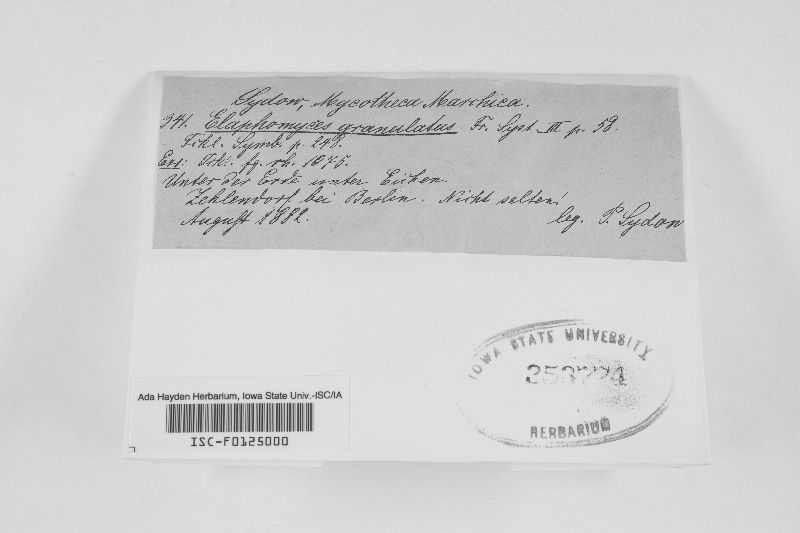 Sydow, Mycotheca Marchica.
341. Elaphomyces granulatus. Fr. Syst. III p. 58.
Fckl. Symb. p. 248.
Exs: Fckl. fg. rh. 1075.
Unter der Erde unter Eichen.
Zehlendorf bei Berlin. Nicht selten!
August 1882.
leg. P. Sydow
IOWA STATE UNIVERSITY
353774
HERBARIUM
Ada Hayden Herbarium, Iowa State Univ.-ISC/IA
ISC-F0125000